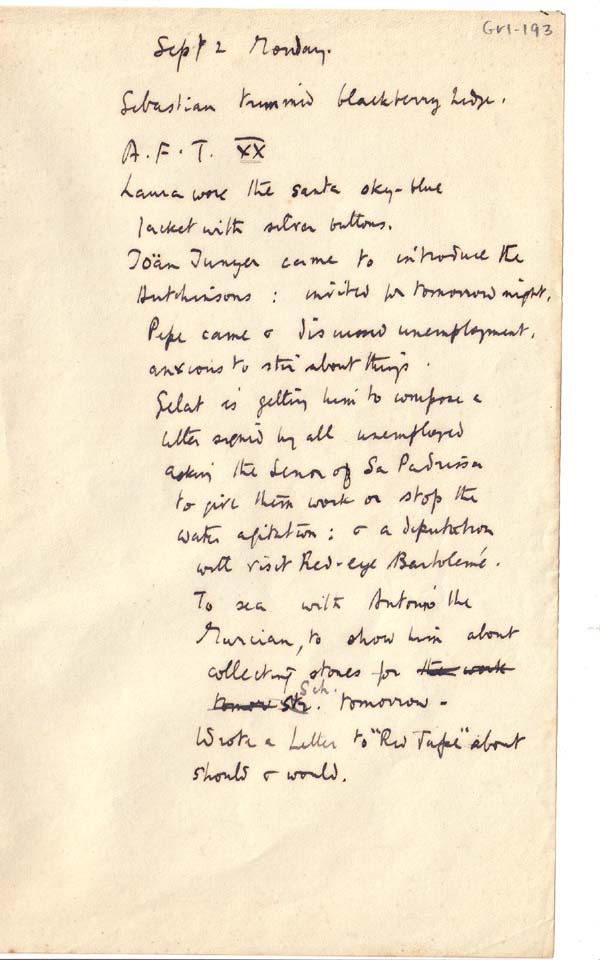 GrI-193
Sept 2 Monday.
Sebastian trimmed blackberry hedge.
A.F.T. XX
Laura wore the santa sky-blue
jacket with silver buttons.
Joän Junyer came to introduce the
Hutchinsons : invited for tomorrow night.
Pepe came & discussed unemployment.
anxious to stir about things.
Gelat is getting him to compose a
letter signed by all unemployed
asking the Senor of Sa Padrissa
to give them work or stop the
water agitation : & a deputation
will visit Red-eye Bartolemé.
To sea with Antonio the
Murcian, to show him about
collecting stones for the work
tomor Str. Sch. tomorrow -
Wrote a Letter to "Red Tape" about
should & would.